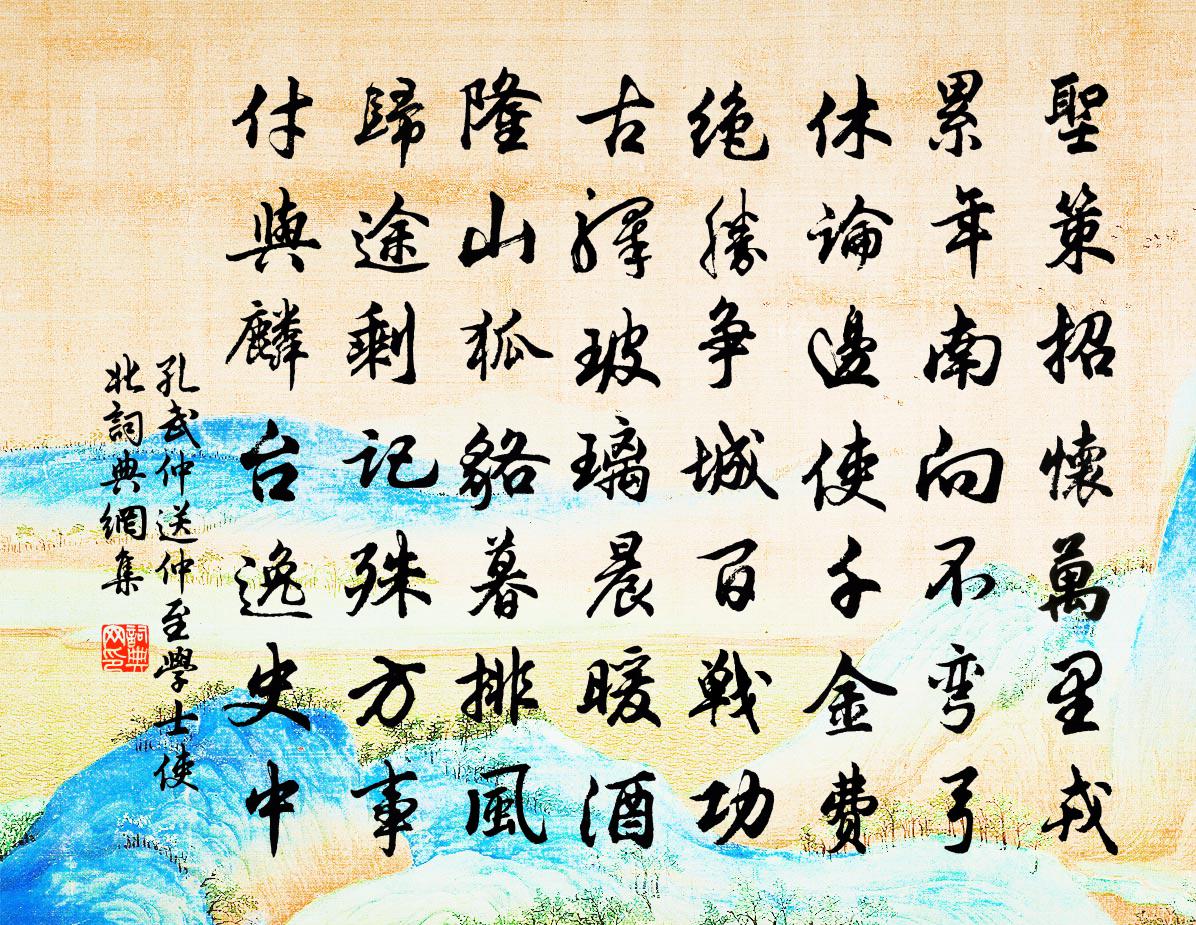 聖策招懷萬里戎
累年南向不彎弓
休論邊使千金費
絶勝爭城百戰功
古驛玻璃晨暖酒
隆山狐貉暮排風
歸途剩記殊方事
付與麟台逸史中
孔武仲送仲至學士使
北詞典網集
詞典